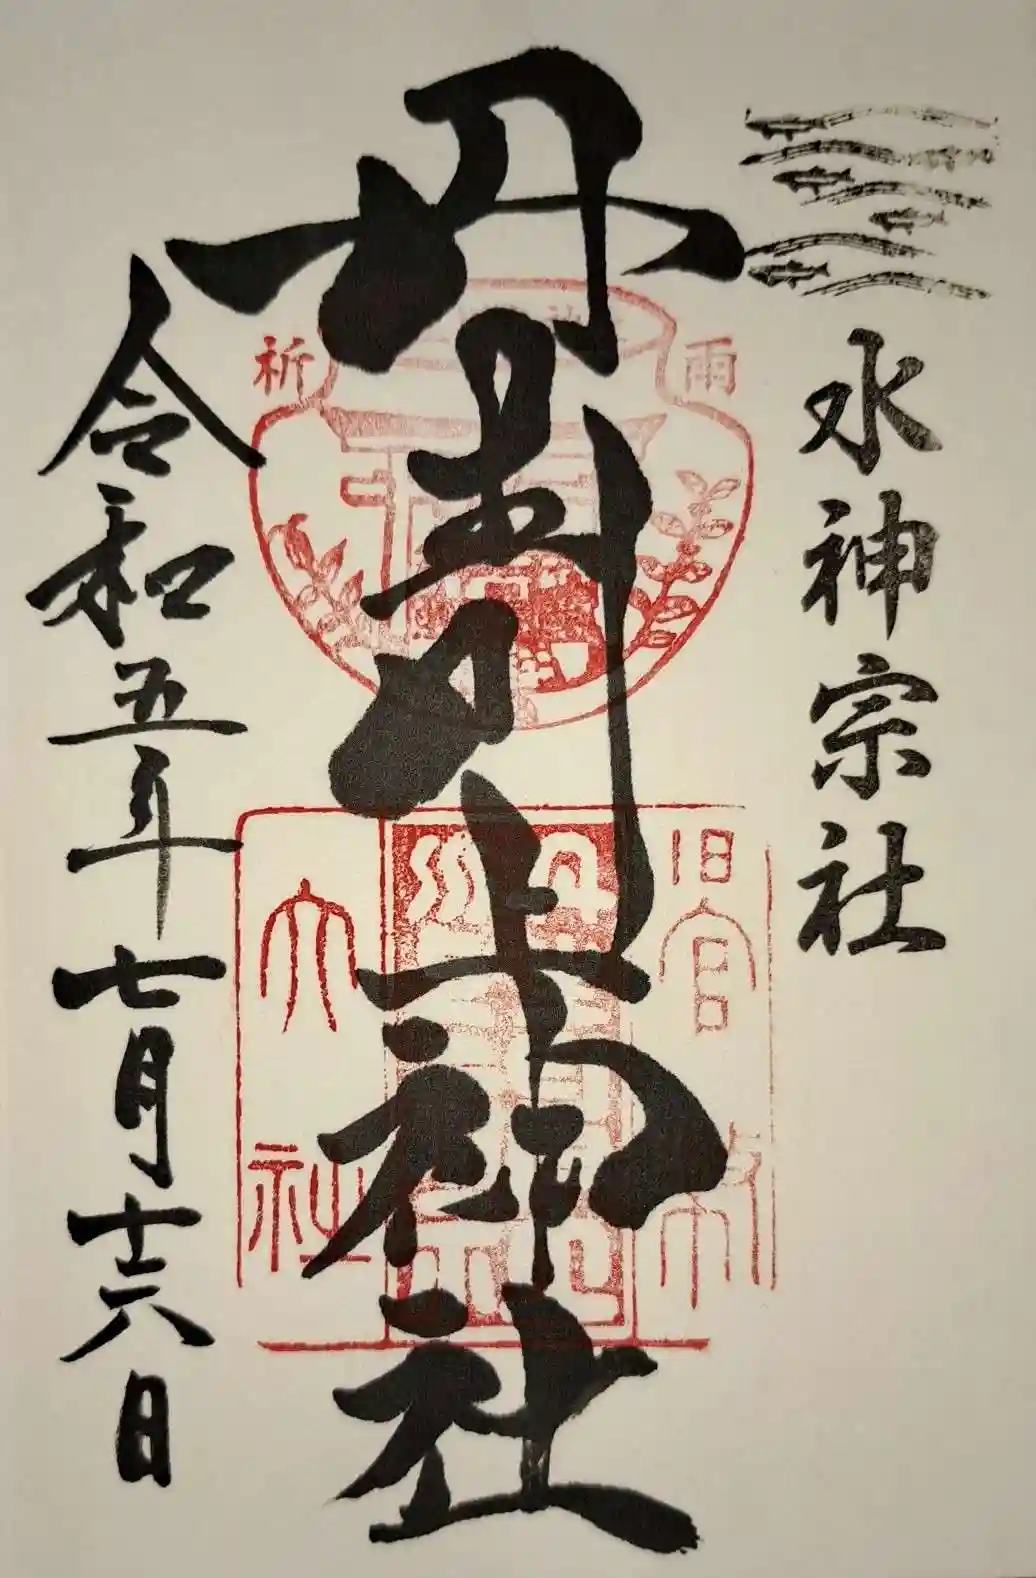 水神宗社
丹生川上神社
令和五年七月十六日
祈雨
旧官幣
大社